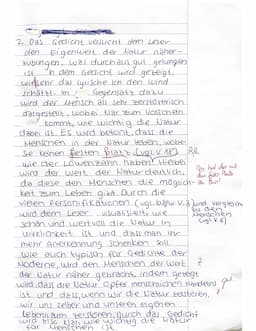 2. Das Gedicht versucht dem Leser
den Eigenwert der Natur näher-
zubringen, was durchaus gut gelungen
ist. In dem Gedicht wird gezeigt,
wie sehr das lyrische Ich den Wind
schätzt. Im Gegensatz dazu
wird der Mensch als sehr zerstörerisch
dargestellt, wobei klar zum Vorschein
kommt, wie wichtig die Natur
dabei ist. Es wird betont, dass die
Menschen in der Natur leben, wobei
sie keinen festen Platz (vgl. V. 18) RR
wie der Löwenzahn haben. Hierbei
wird der Wert der Natur deutlich,
da diese den Menschen die Möglich-
keit zum Leben gibt. Durch die
vielen Personifikationen (vgl. V. 3) und Vergleiche
zu den
Menschen
wird dem Leser visualisiert, wie
schön und wertvoll die Natur in
Wirklichkeit ist und dass man ihr
mehr Anerkennung schenken soll.
Wie auch typisch für Gedichte der
Moderne, wird den Menschen der Wert
der Natur näher gebracht, indem gezeigt
wird, dass die Natur Opfer menschlichen Handelns gut
ist und dass, wenn wir die Natur zerstören,
wir uns selber und unseren eigenen
Lebensraum zerstören. Durch das Gedicht
wird also klar, wie wichtig die Natur
für Menschen ist.